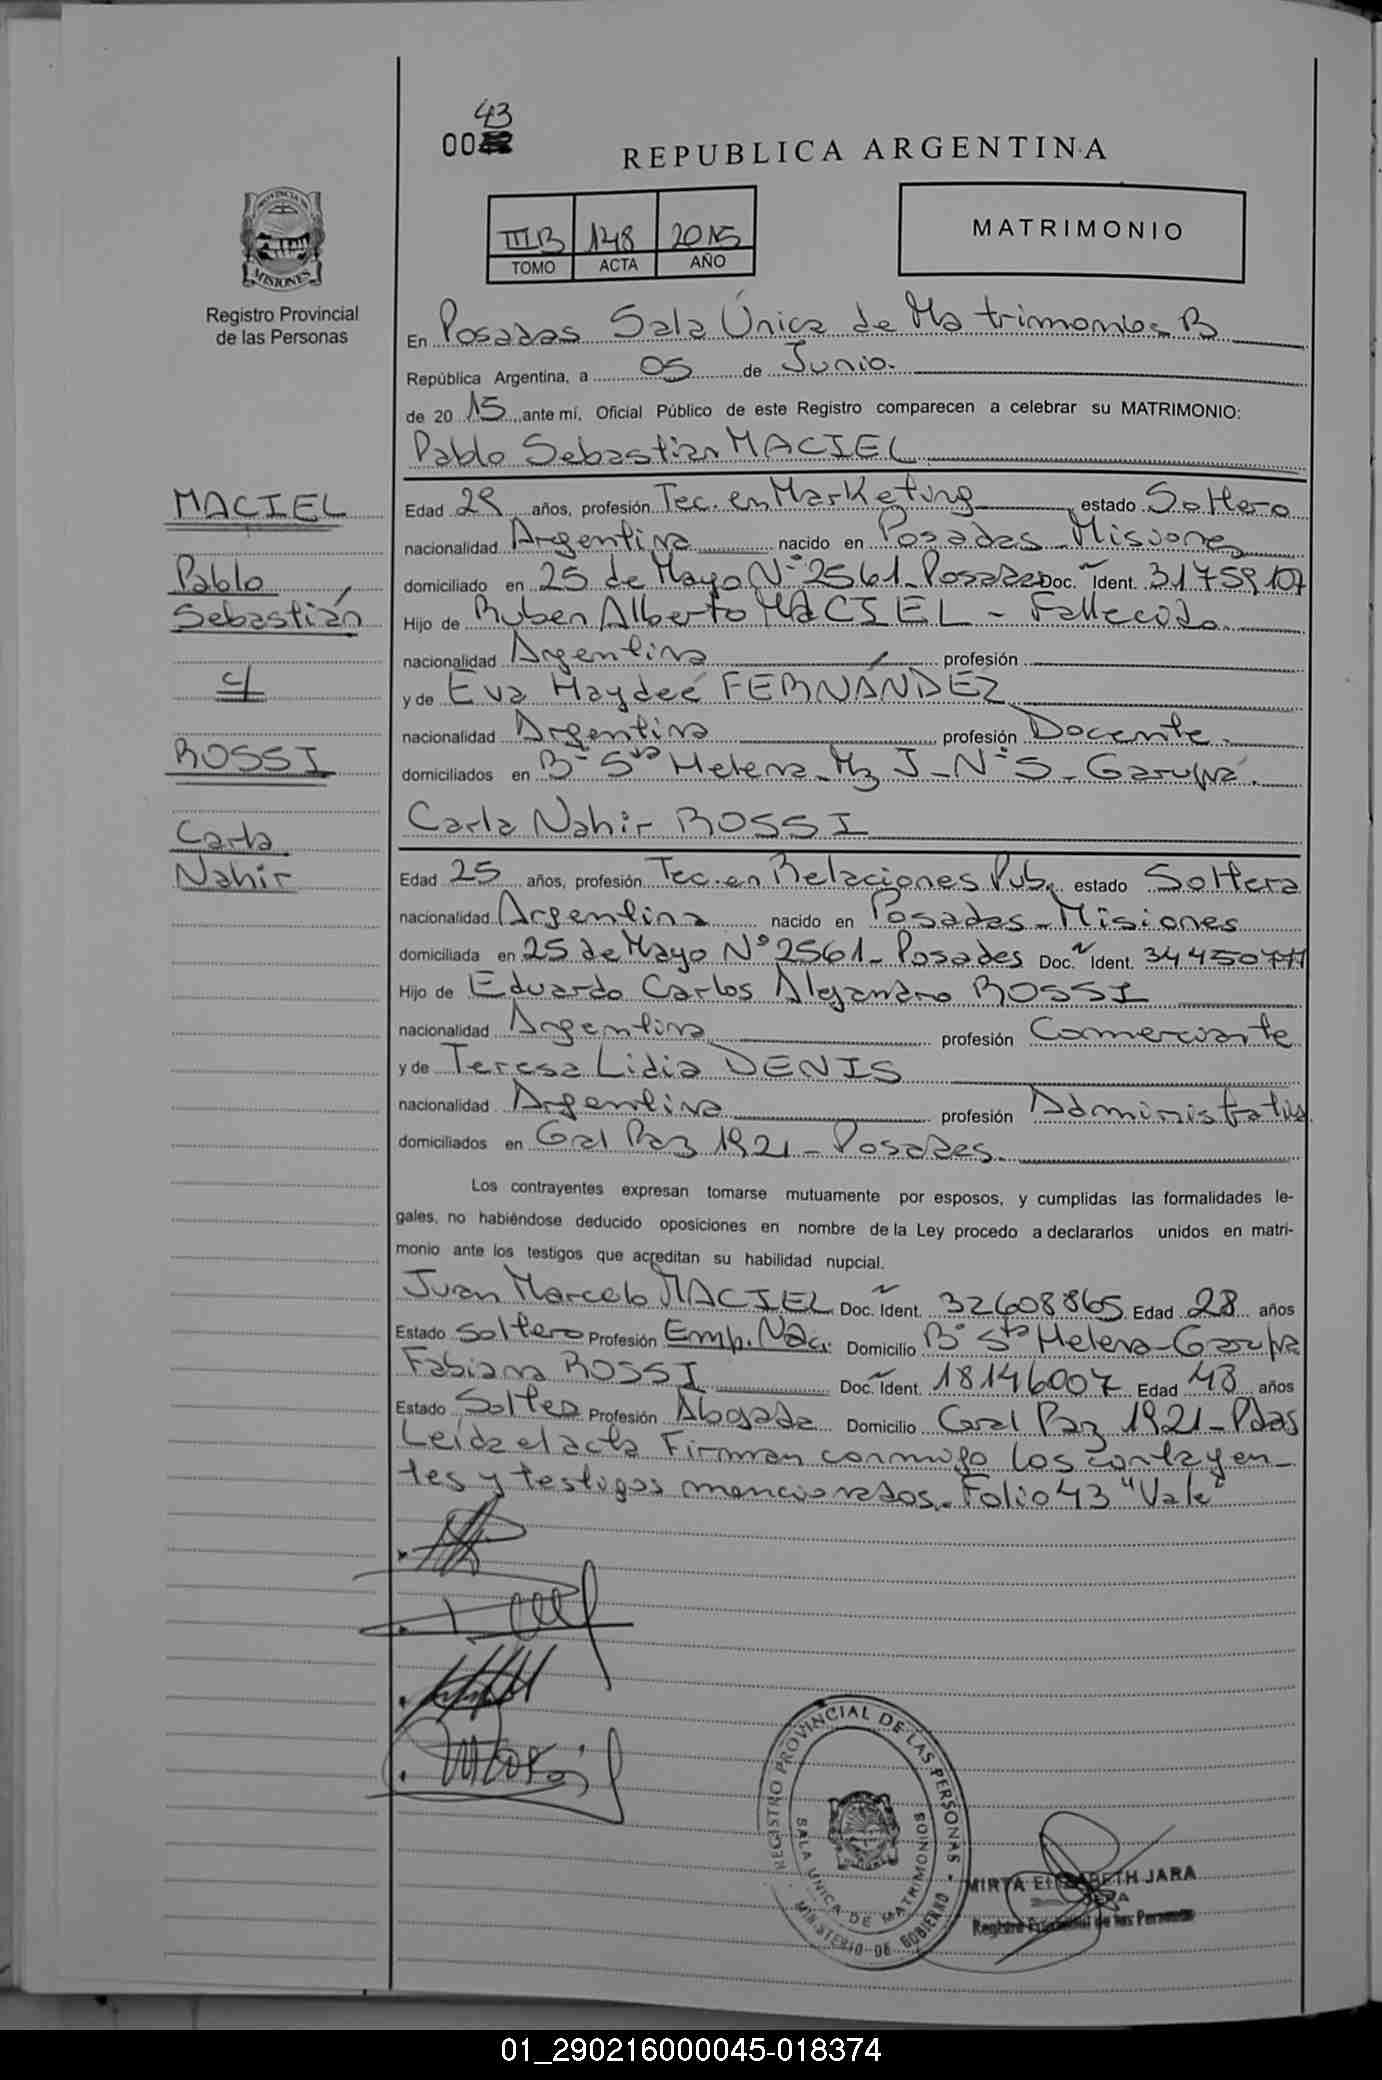 43
00
REPUBLICA ARGENTINA
MATRIMONIO
IIIB 148 2015
TOMO ACTA AÑO
Registro Provincial
de las Personas
En Posadas Sala Única de Matrimonios B
República Argentina, a 05 de Junio.
de 20 15 ante mí, Oficial Público de este Registro comparecen a celebrar su MATRIMONIO:
Pablo Sebastian MACIEL
MACIEL
Pablo
Sebastián
c/
ROSSI
Carla
Nahir
Edad 29 años, profesión Tec. en Marketing estado Soltero
nacionalidad Argentina nacido en Posadas Misiones
domiciliado en 25 de Mayo Nº 2561 - Posadas Doc. Ident. 31759107
Hijo de Ruben Alberto MACIEL - Fallecido
nacionalidad Argentina profesión
y de Eva Haydeé FERNÁNDEZ
nacionalidad Argentina profesión Docente
domiciliados en Bº Sta Helena Mz J - Nº 5 - Garupá.
Carla Nahir ROSSI
Edad 25 años, profesión Tec. en Relaciones Pub. estado Soltera
nacionalidad Argentina nacido en Posadas - Misiones
domiciliada en 25 de Mayo Nº 2561 - Posadas Doc. Ident. 34450777
Hijo de Eduardo Carlos Alejandro ROSSI
nacionalidad Argentina profesión Comerciante
y de Teresa Lidia DENIS
nacionalidad Argentina profesión Administrativa
domiciliados en Gral Paz 1921 - Posadas.
Los contrayentes expresan tomarse mutuamente por esposos, y cumplidas las formalidades le-
gales, no habiéndose deducido oposiciones en nombre de la Ley procedo a declararlos unidos en matri-
monio ante los testigos que acreditan su habilidad nupcial.
Juan Marcelo MACIEL Doc. Ident. 32608865 Edad 28 años
Estado Soltero Profesión Emp. Nac. Domicilio Bº Sta Helena - Garupa
Fabiana ROSSI Doc. Ident. 18146007 Edad 48 años
Estado Soltera Profesión Abogada Domicilio Gral Paz 1921 - Pdas
Leída el acta Firman conmigo los contrayen-
tes y testigos mencionados. Folio 43 "Vale"
REGISTRO PROVINCIAL DE LAS PERSONAS
SALA ÚNICA DE MATRIMONIOS
MINISTERIO DE GOBIERNO
MIRTA ELIZABETH JARA
Registro Provincial de las Personas
01_290216000045-018374